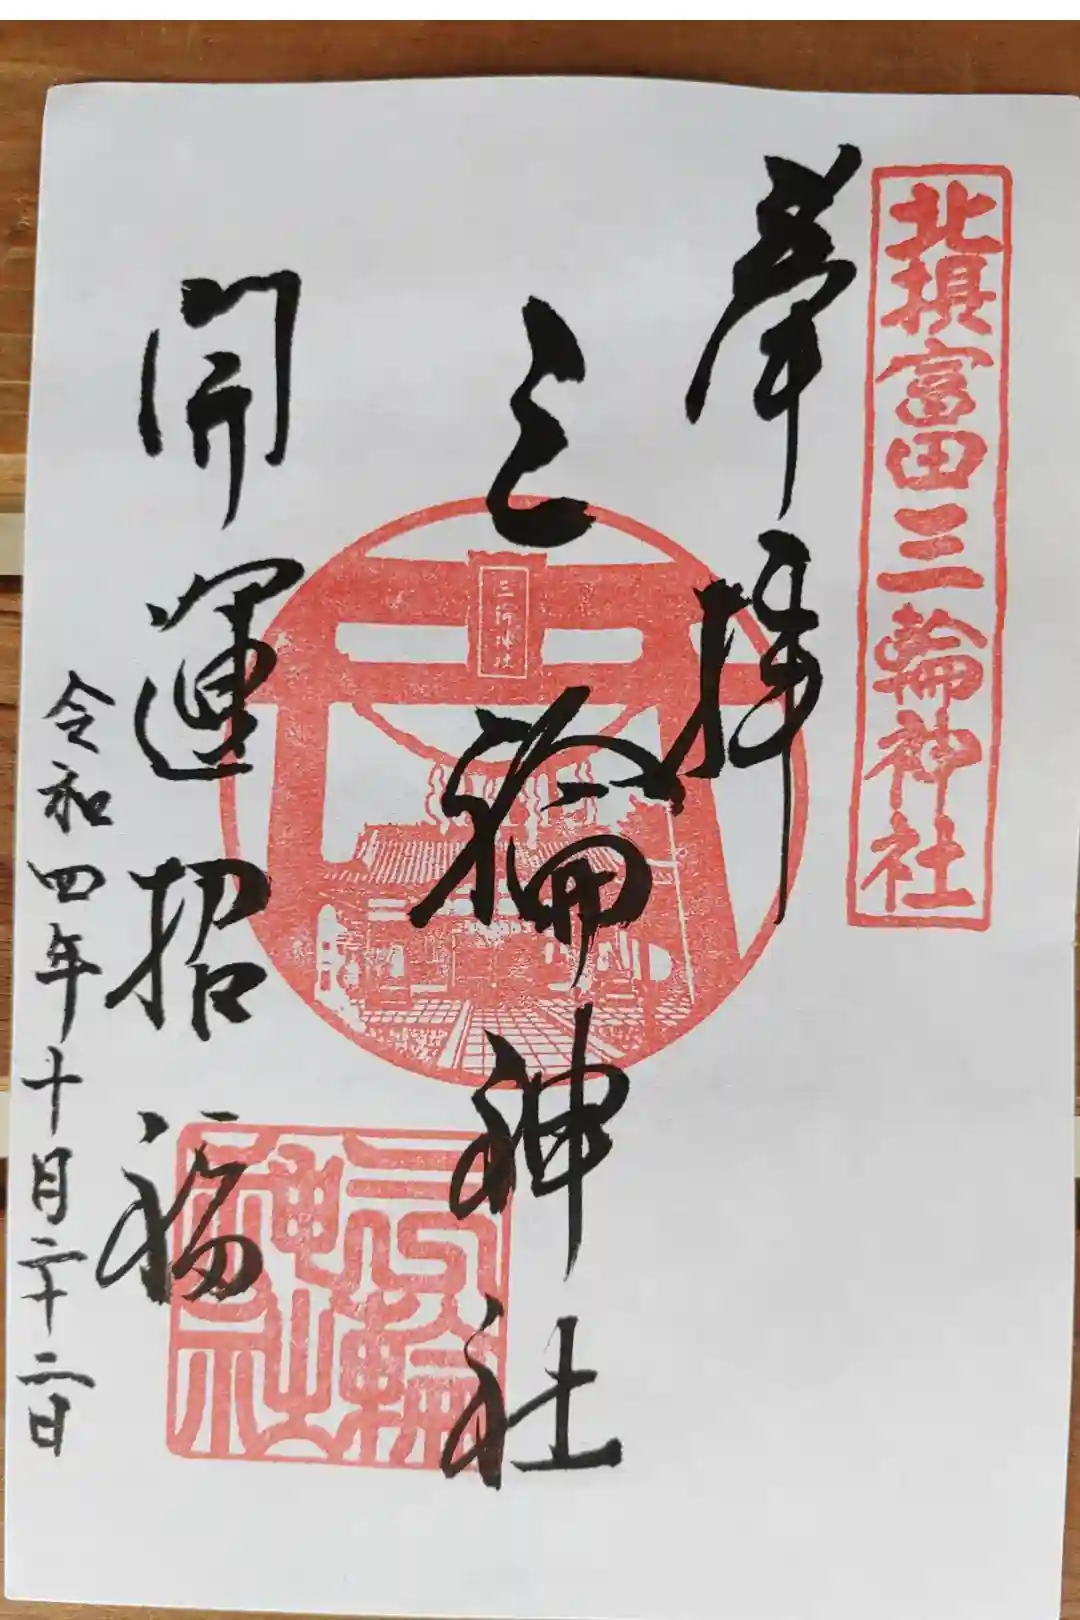 北摂富田三輪神社
奉拝
三輪神社
開運招福
令和四年十月二十二日
三輪神社
三輪神社